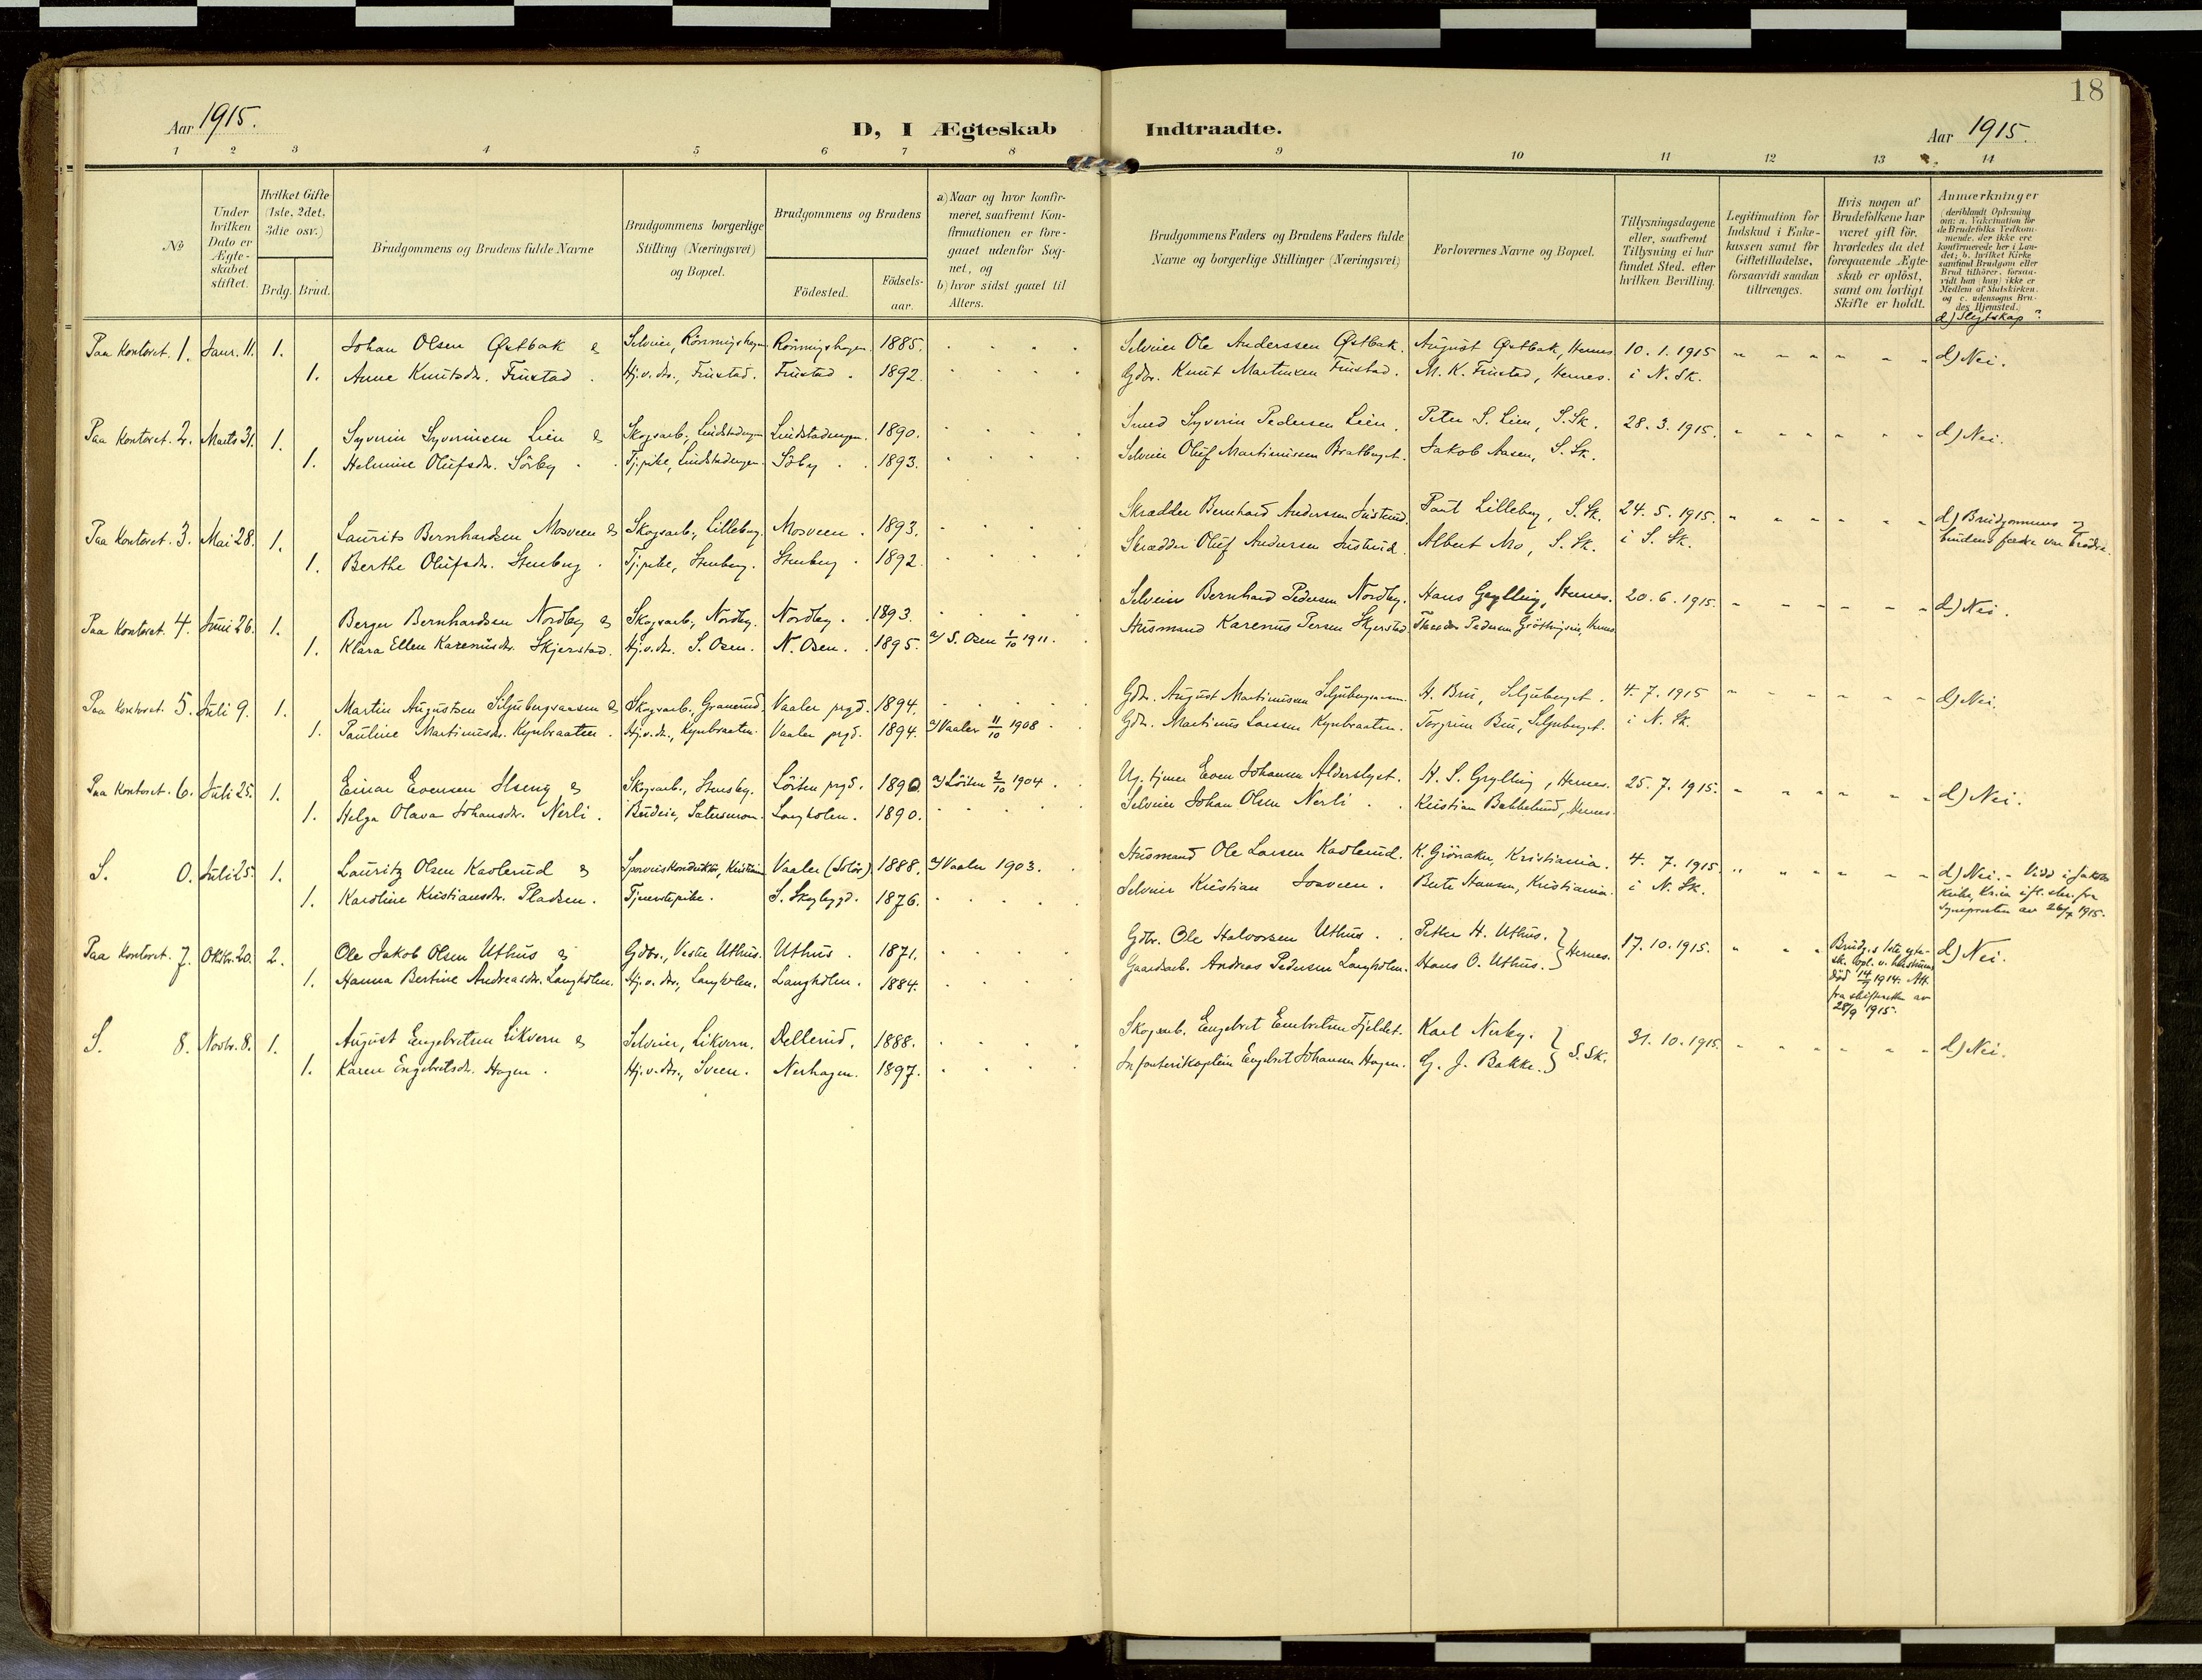 18
Aar 1915.
D, I Ægteskab Indtraadte.
Aar 1915.
1 2 3 4 5 6 7 8 9 10 11 12 13 14
No
Under hvilken Dato er Ægteskabet stiftet.
Hvilket Gifte (1ste, 2det, 3die osv.)
Brdg. Brud.
Brudgommens og Brudens fulde Navne
Brudgommens borgerlige Stilling (Næringsvei) og Bopæl.
Brudgommens og Brudens
Födested.
Födselsaar.
a) Naar og hvor konfirmeret, saafremt Konfirmationen er foregaaet udenfor Sognet, og
b) hvor sidst gaaet til Alters.
Brudgommens Faders og Brudens Faders fulde Navne og borgerlige Stillinger (Næringsvei)
Forlovernes Navne og Bopæl.
Tillysningsdagene eller, saafremt Tillysning ei har fundet Sted, efter hvilken Bevilling.
Legitimation for Indskud i Enkekassen samt for Giftetilladelse, forsaavidt saadan tiltrænges.
Hvis nogen af Brudefolkene har været gift för, hvorledes da det foregaaende Ægteskab er oplöst, samt om lovligt Skifte er holdt.
Anmærkninger
(deriblandt Oplysning om: a. Vakcination for de Brudefolks Vedkommende, der ikke ere konfirmerede her i Landet; b. hvilket Kirkesamfund Brudgom eller Brud tilhörer, forsaavidt han (hun) ikke er Medlem af Statskirken, og c. udensogns Brudes Hjemsted.)
d) Slegtskap?
Paa Kontoret. 1. Janr. 11. 1. Johan Olsen Østbak & Selveier, Rönningshagen Rönningshagen. 1885. Selveier Ole Anderssen Østbak. August Østbak, Hernes 10. 1. 1915 d) Nei.
1. Anne Knutsdr. Frustad. Hj.v. dtr., Frustad. Frustad. 1892. Gdbr. Knut Martinsen Frustad. M. K. Frustad, Hernes. i N. Sk.
Paa Kontoret. 2. Marts 31. 1. Syverin Syverinsen Lien & Skogsarb., Lindstadengen Lindstadengen. 1890. Smed Syverin Pedersen Lien. Peter S. Lien, S. Sk. 28. 3. 1915. d) Nei.
1. Helmine Olufsdr. Sörby. Tj.pike, Lindstadengen. Söby. 1893. Selveier Oluf Martinussen Bratberget. Jakob Aasen, S. Sk.
Paa Kontoret. 3. Mai 28. 1. Laurits Bernhardsen Mosveen & Skogsarb., Lilleberg. Mosveen. 1893. Skrædder Bernhard Anderssen Paul Lilleberg, S. Sk. 24. 5. 1915. d) Brudgommens og
1. Berthe Olufsdr. Stenberg. Tj.pike, Stenberg. Stenberg. 1892. Skrædder Oluf Andersen Albert Mo, S. Sk. i S. Sk. brudens fædre var brødre.
Paa Kontoret. 4. Juni 26. 1. Berger Bernhardsen Nordby & Skogsarb., Nordby. Nordby. 1893. Selveier Bernhard Pedersen Nordby. Hans Grylling, Hernes. 20. 6. 1915. d) Nei.
1. Klara Ellen Karenusdr. Skjerstad. Hj.v. dtr. S. Osen. N. Osen. 1895. a) S. Osen 1/10 1911. Husmand Karenus Persen Skjerstad Theodor Pedersen Hernes
Paa Kontoret. 5. Juli 9. 1. Martin Augustsen Siljubergsaasen & Skogsarb., Granerud. Vaaler prgd. 1894. Gdbr. August Martinussen Siljubergsaasen H. Bru, Siljuberget. 4. 7. 1915 d) Nei.
1. Pauline Martinusdr. Kynbraaten. Hj.v. dtr., Kynbraaten. Vaaler prgd. 1894. a) Vaaler 11/10 1908 Gdbr. Martinus Larssen Kynbraaten. Torgrim Bru, Siljuberget. i N. Sk.
Paa Kontoret. 6. Juli 25. 1. Einar Evensen Ilseng & Skogsarb., Löiten prgd. 1890 a) Löiten 2/10 1904. Even Johansen H. S. Grylling, Hernes. 25. 7. 1915. d) Nei.
1. Helga Olava Johansdr. Nerli. Budeie, Langholen. 1890. Selveier Johan Olsen Nerli. Kristian Hernes.
S. 0. Juli 25. 1. Lauritz Olsen Kavlerud & Sporveiskonduktör, Kristiania Vaaler (Solör). 1888. a) Vaaler 1903. Husmand Ole Larsen Kavlerud. K. Grönaker, Kristiania. 4. 7. 1915. d) Nei. - Viet i Jakobs
1. Karoline Kristiansdr. Pladsen. Tjenestepike. S. Skogbygd. 1876. Selveier Kristian Josveen. Berte Hansen, Kristiania. i N. Sk. kirke, Kr.ia ifl. skr. fra
Sogneprsten av 26/7 1915.
Paa Kontoret. 7. Oktbr. 20. 2. Ole Jakob Olsen Uthus & Gdbr., Vestre Uthus. Uthus. 1871. Gdbr. Ole Halvorsen Uthus. Petter H. Uthus. } Hernes. 17. 10. 1915. d) Nei.
1. Hanna Bertine Andreasdr. Langholen. Hj.v. dtr., Langholen. Langholen. 1884. Gaardsarb. Andreas Pedersen Langholen. Hans O. Uthus.
Brudg.s 1ste egtesk. opl. v. hustruens död 14/9 1914. Att. fra skifteretten av 28/9 1915.
S. 8. Novbr. 8. 1. August Engebretsen Likvern & Selveier, Likvern. Dellerud. 1888. Skogsarb. Engebret Embretsen Fjeldet. Karl Nerby. } S. Sk. 31. 10. 1915. d) Nei.
1. Karen Engebretsdr. Hagen. Hj.v. dtr., Sveen. Nerhagen. 1897. Infanterikaptein Engebret Johansen Hagen. G. J. Bakke.